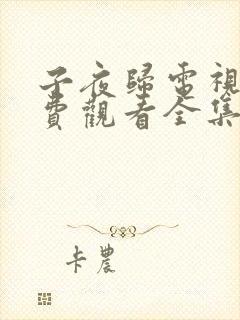 子夜歸電視
費觀看全集
卡農